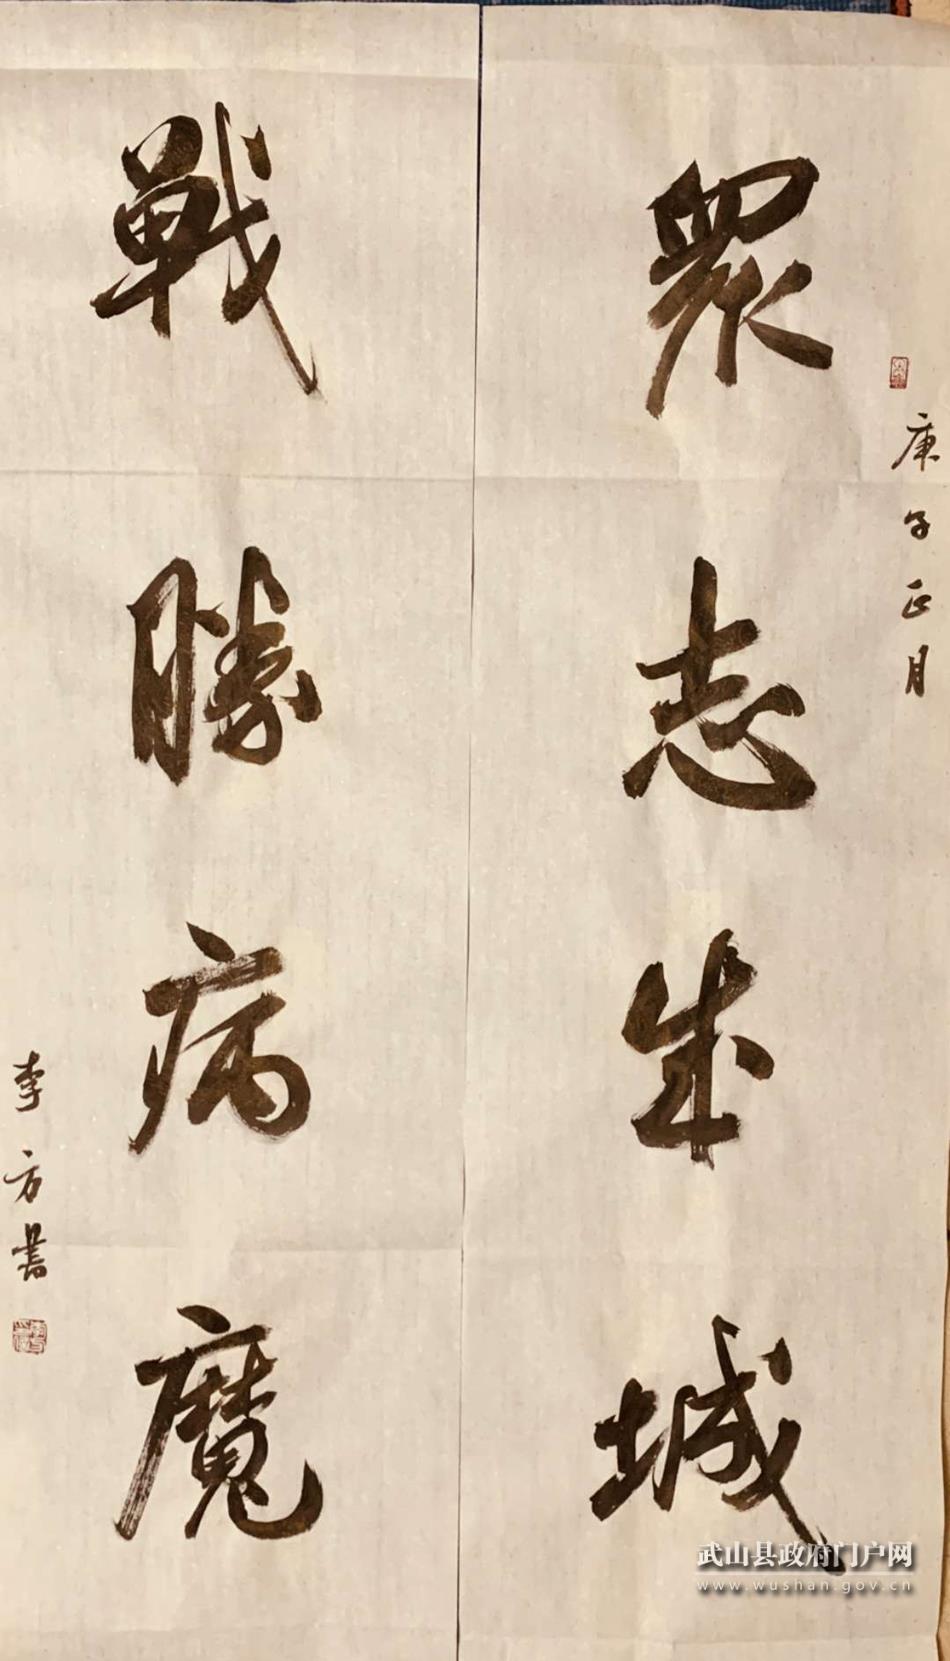 眾志成城
庚子正月
戰勝病魔
李方書
武山县政府门户网
www.wushan.gov.cn